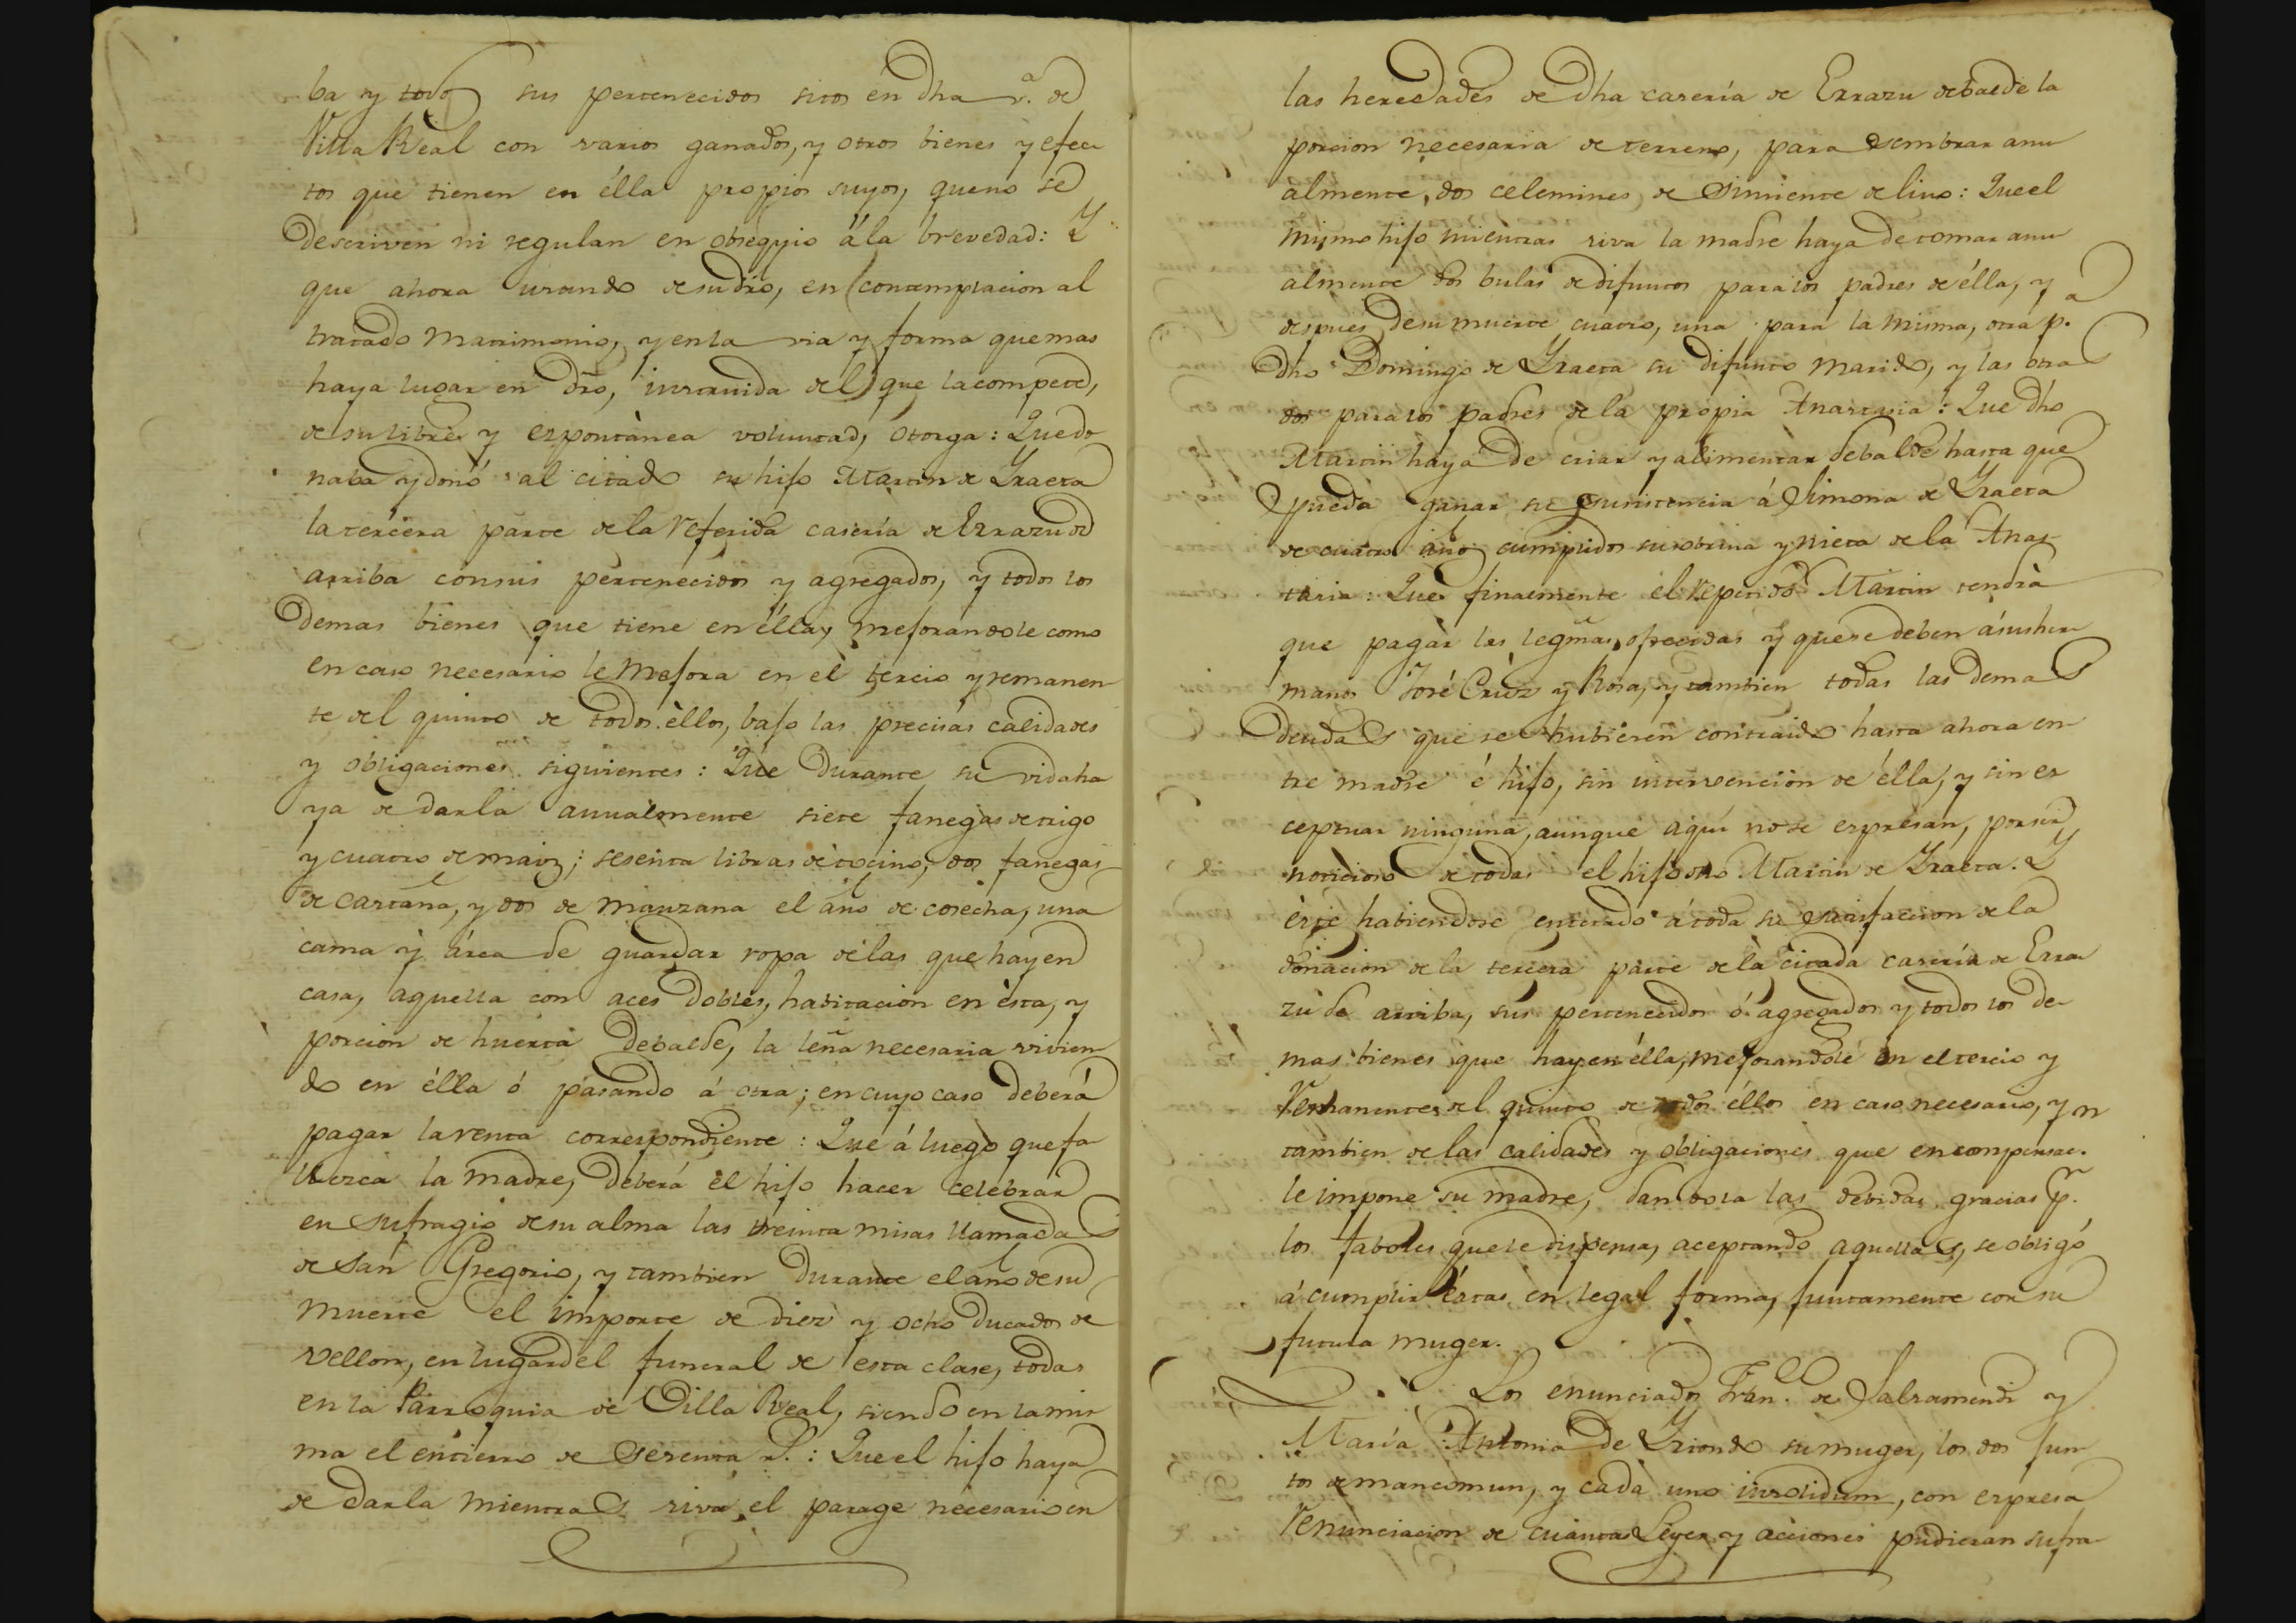 ba y todos sus pertenecidos sitos en dha v.ª de
Villa Real con varios ganados, y otros bienes y efec
tos que tienen en élla propios suyos, que no se
descriven ni regulan en obsequio á la brevedad: Y
que ahora usando de su dro, en contemplacion al
tratado Matrimonio, y en la via y forma que mas
haya lugar en dro, instruida del que la compete,
de su libre y espontànea voluntad, otorga: Que do
naba y donó al citado su hijo Martin de Yraeta
la tercera parte de la referida caseria de Errazu de
arriba con sus pertenecidos y agregados, y todos los
demas bienes que tiene en élla, mejorandole como
en caso necesario le mejora en el tercio y remanen
te del quinto de todos éllos, bajo las precisas calidades
y obligaciones siguientes: Que durante su vida ha
ya de darla anualmente siete fanegas de trigo
y cuatro de maiz; sesenta libras de tocino, dos fanegas
de castaña, y dos de manzana el año de cosecha, una
cama y arca de guardar ropa de las que hay en
casa, aquella con aces dobles, habitacion en ésta, y
porcion de huerta debalde, la leña necesaria vivien
do en élla ó pasando á otra; en cuyo caso deberá
pagar la renta correspondiente: Que á luego que fa
llezca la madre, deberá el hijo hacer celebrar
en sufragio de su alma las treinta misas llamadas
de San Gregorio, y tambien durante el año de su
muerte el importe de diez y ocho ducados de
vellon, en lugar del funeral de esta clase, todas
en la Parroquia de Villa Real, siendo en la mis
ma el entierro de sesenta r.s: Que el hijo haya
de darla mientras viva, el parage necesario en
las heredades de dha caseria de Errazu debalde la
porcion necesaria de terreno, para sembrar anu
almente, dos celemines de simiente de lino: Que el
mismo hijo mientras viva la madre haya de tomar anu
almente dos bulas de difuntos para los padres de élla, y
despues de su muerte cuatro, una para la misma, otra p.ª
dho Domingo de Yraeta su difunto marido, y las otras
dos para los padres de la propia Anastasia: Que dho
Martin haya de criar y alimentar debalde hasta que
pueda ganar su subsistencia á Simona de Yraeta
de cuatro años cumplidos su sobrina y nieta de la Anas
tasia: Que finalmente el repetido Martin tendrà
que pagar las legmas ofrecidas y que se deben á sus her
manos José Cruz y Rosa, y tambien todas las demas
deudas que se hubieren contraido hasta ahora en
tre madre é hijo, sin intervencion de élla, y sin es
ceptuar ninguna, aunque aqui no se espresan, por ser
noticioso de todas el hijo dho Martin de Yraeta. Y
éste habiendose enterado á toda su satisfaccion de la
donacion de la tercera parte de la citada caseria de Erra
zu de arriba, sus pertenecidos ó agregados y todos los de
mas bienes que hay en élla, mejorandole en el tercio y
remanente del quinto de todos éllos en caso necesario, y
tambien de las calidades y obligaciones que en compensac.n
le impone su madre, dandola las debidas gracias p.r
los fabores que le dispensa, aceptando aquellas, se obligó
á cumplir éstas en legal forma, juntamente con su
futura muger.
Los enunciados Fran.co de Salsamendi y
Maria Antonia de Yriondo su muger, los dos jun
tos de mancomun, y cada uno insolidum, con espresa
renunciacion de cuantas Leyes y acciones pudieran sufra